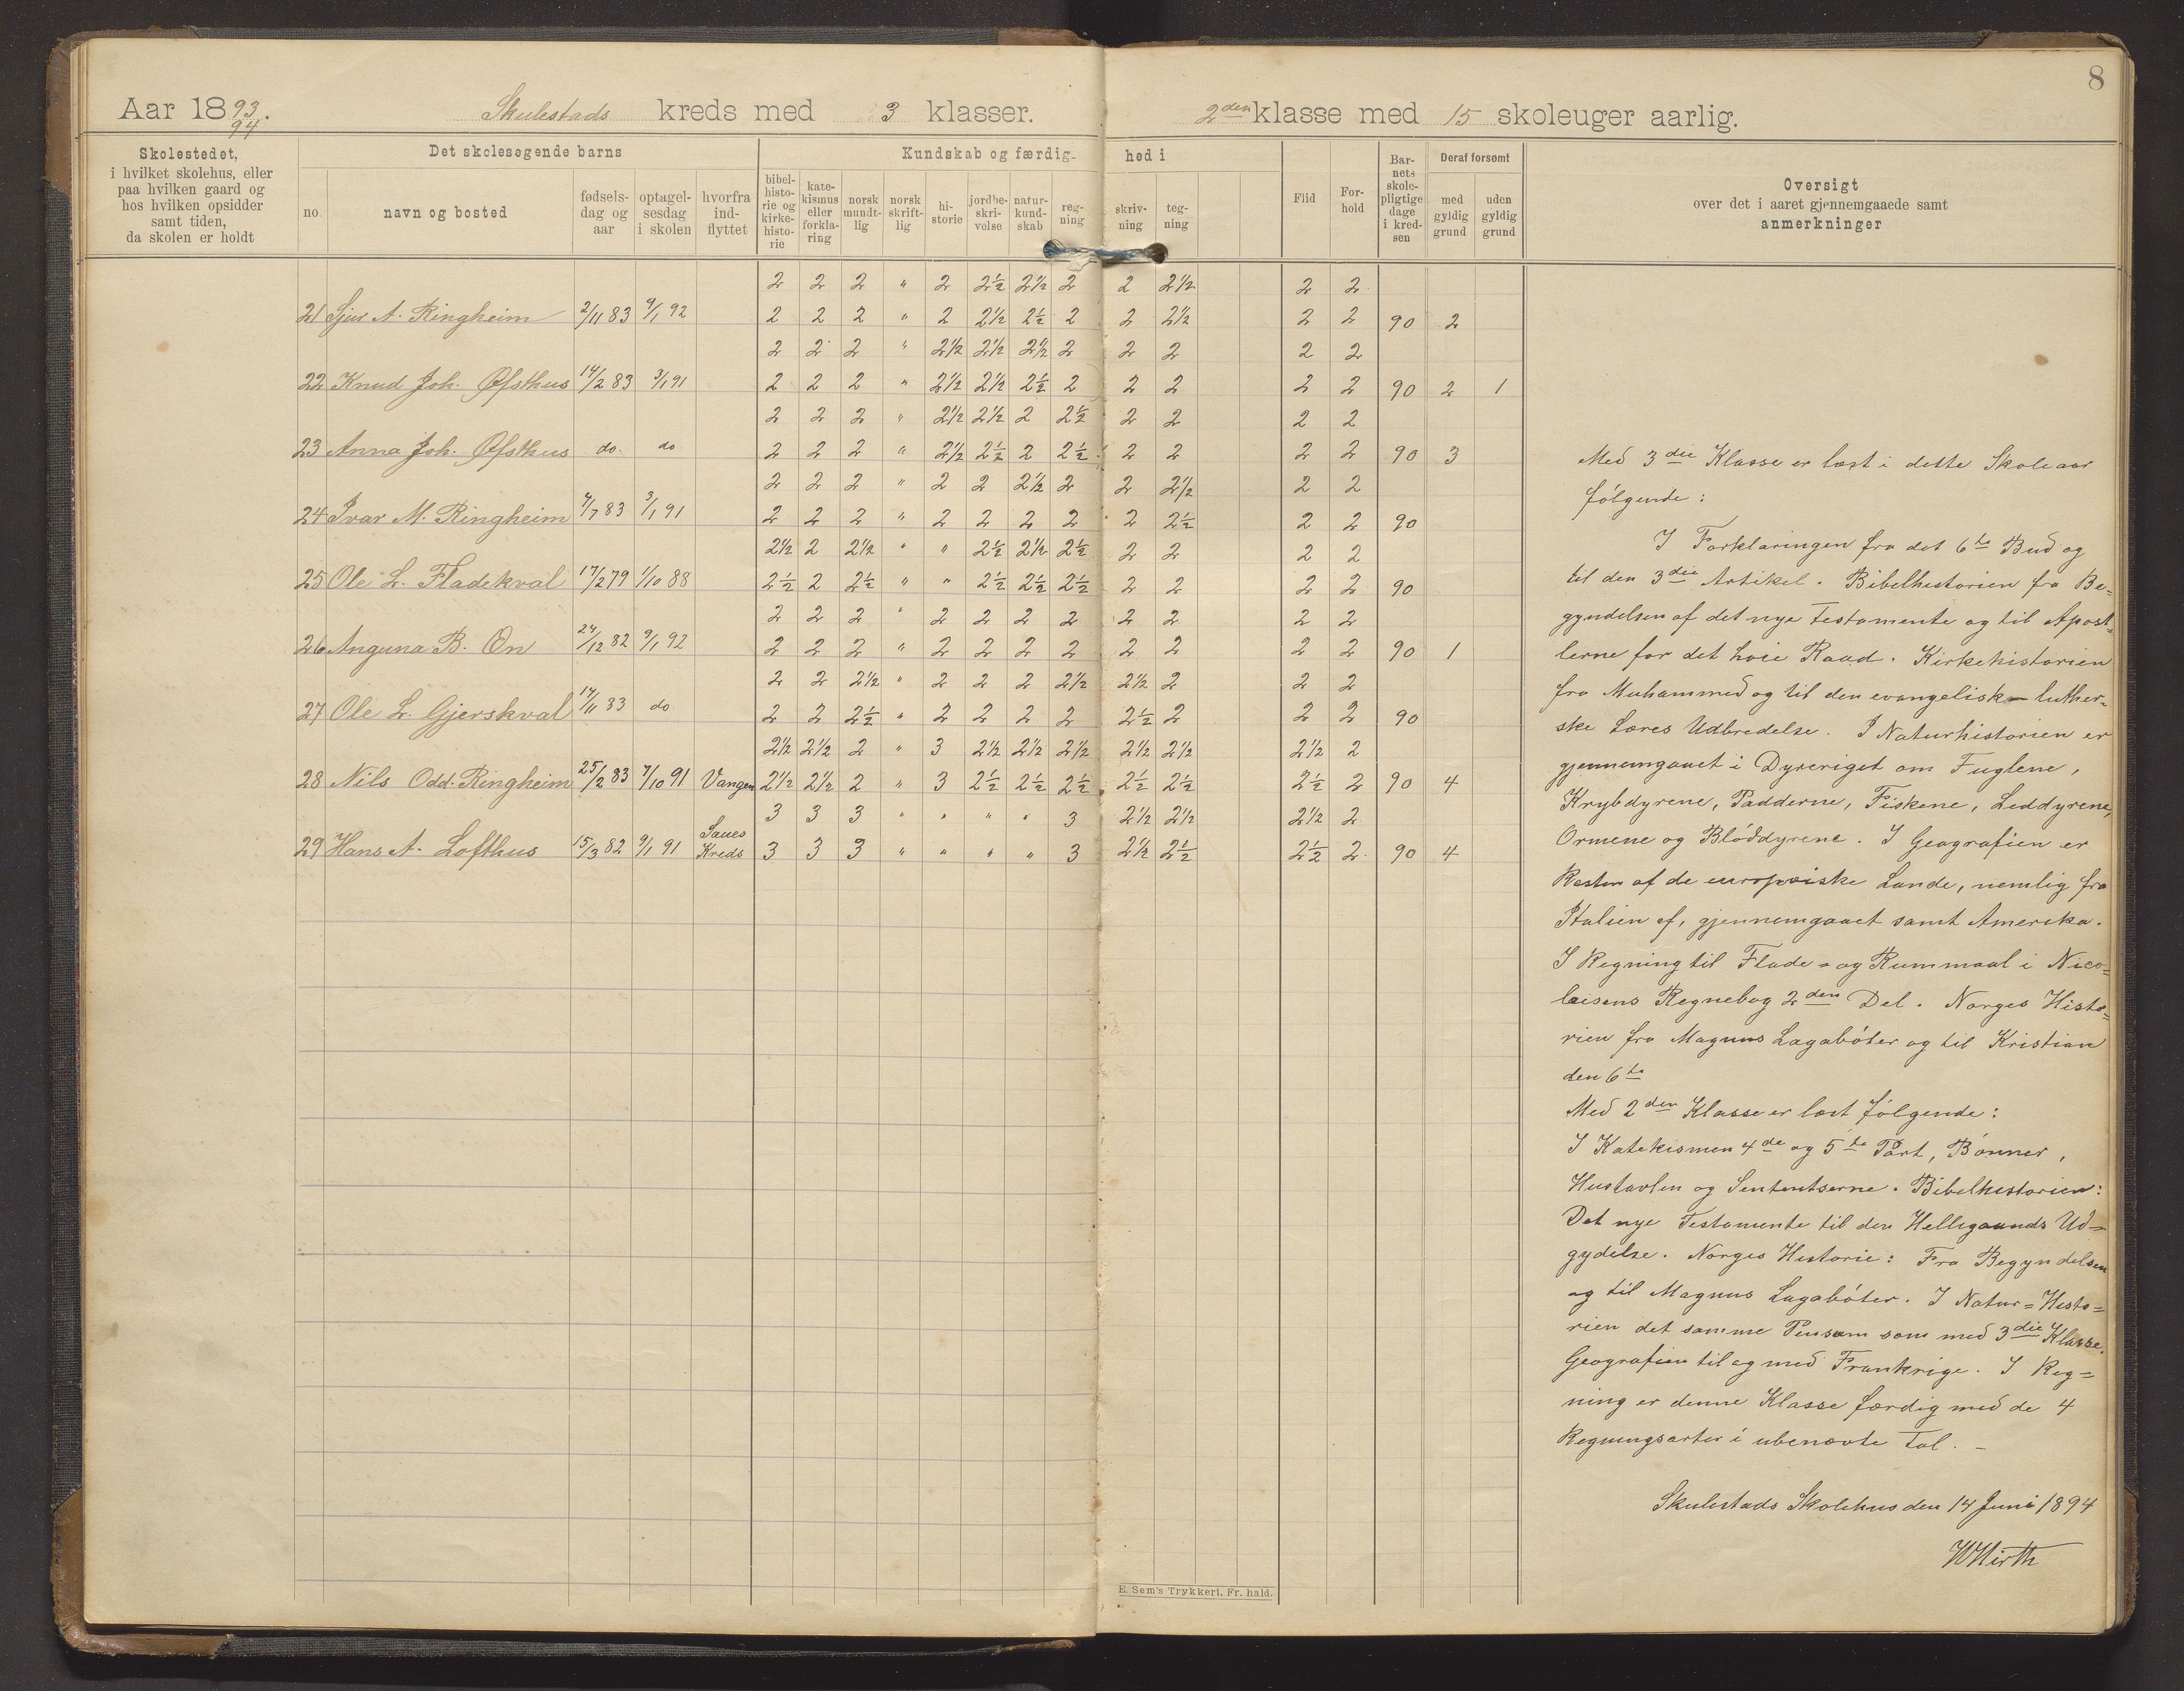 8
Aar 1893/94. Skulestads kreds med 3 klasser. 2den klasse med 15 skoleuger aarlig.
Skolestedet,
i hvilket skolehus, eller
paa hvilken gaard og
hos hvilken opsidder
samt tiden,
da skolen er holdt
Det skolesøgende barns
no.
navn og bosted
fødsels-
dag og
aar
optagel-
sesdag
i skolen
hvorfra
ind-
flyttet
Kundskab og færdig- hed i
bibel-
histo-
rie og
kirke-
histo-
rie
kate-
kismus
eller
forkla-
ring
norsk
mundt-
lig
norsk
skrift-
lig
hi-
storie
jordbe-
skri-
velse
natur-
kund-
skab
reg-
ning
skriv-
ning
teg-
ning
Flid
For-
hold
Bar-
nets
skole-
pligtige
dage
i kred-
sen
Deraf forsømt
med
gyldig
grund
uden
gyldig
grund
Oversigt
over det i aaret gjennemgaaede samt
anmerkninger
2 2 2 " 2 2½ 2½ 2 2 2½ 2 2
21 Sjur A. Ringheim 2/11 83 9/1 92 2 2 2 " 2 2½ 2½ 2 2 2½ 2 2 90 2
2 2 2 " 2½ 2½ 2½ 2 2 2 2 2
22 Knud Joh. Øfsthus 14/2 83 3/1 91 2 2 2 " 2½ 2½ 2½ 2 2 2 2 2 90 2 1
2 2 2 " 2½ 2½ 2 2½ 2 2 2 2
23 Anna Joh. Øfsthus do. do 2 2 2 " 2½ 2½ 2 2½ 2 2 2 2 90 3
2 2 2 " 2 2 2½ 2 2 2½ 2 2
24 Ivar M. Ringheim 7/7 83 3/1 91 2 2 2 " 2 2 2 2 2 2½ 2 2 90
2½ 2 2½ " " 2½ 2½ 2½ 2 2 2 2
25 Ole L. Fladekval 17/2 79 1/10 88 2½ 2 2½ " " 2½ 2½ 2½ 2 2 2 2 90
2 2 2 " 2 2 2 2 2 2 2 2
26 Anguna B. Øn 24/12 82 9/1 92 2 2 2 " 2 2 2 2 2 2 2 2 90 1
2 2 2½ " 2 2 2 2½ 2½ 2 2 2
27 Ole L. Gjerskval 14/11 83 do 2 2 2½ " 2 2 2 2 2½ 2 2 2 90
2½ 2½ 2 " 3 2½ 2½ 2½ 2½ 2½ 2½ 2
28 Nils Odd. Ringheim 25/2 83 7/10 91 Vangen 2½ 2½ 2 " 3 2½ 2½ 2½ 2½ 2½ 2½ 2 90 4
3 3 3 " " " " 3 2½ 2½ 2½ 2
29 Hans A. Lofthus 15/3 82 9/1 91 Saues Kreds 3 3 3 " " " " 3 2½ 2½ 2½ 2 90 4
Med 3die Klasse er læst i dette Skoleaar
følgende:
I Forklaringen fra det 6te Bud og
til den 3die Artikel. Bibelhistorien fra Be-
gyndelsen af det nye Testamente og til Apost-
lerne for det høie Raad. Kirkehistorien
fra Muhammed og til den evangelisk-luther-
ske Læres Udbredelse. I Naturhistorien er
gjennemgaaet i Dyreriget om Fuglene,
Krybdyrene, Padderne, Fiskene, Leddyrene,
Ormene og Bløddyrene. I Geografien er
Resten af de europæiske Lande, nemlig fra
Italien af, gjennemgaaet samt Amerika.
I Regning til Flade- og Rummaal i Nico-
laisens Regnebog 2den Del. Norges Histo-
rien fra Magnus Lagabøter og til Kristian
den 6te
Med 2den Klasse er læst følgende:
I Katekismen 4de og 5te Part, Bønner,
Hustavlen og Sententserne. Bibelhistorien:
Det nye Testamente til den Helligaands Ud-
gydelse. Norges Historie: Fra Begyndelsen
og til Magnus Lagabøter. I Natur-Histo-
rien det samme Pensum som med 3die Klasse.
Geografien til og med Frankrige. I Reg-
ning er denne Klasse færdig med de 4
Regningsarter i ubenævte Tal. –
Skulestads Skolehus den 14 Juni 1894
WHirth
E. Sem's Trykkeri, Fr. hald.